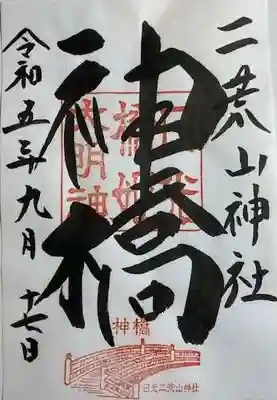 二荒山神社
神橋
令和五年九月十七日
神橋
日光二荒山神社